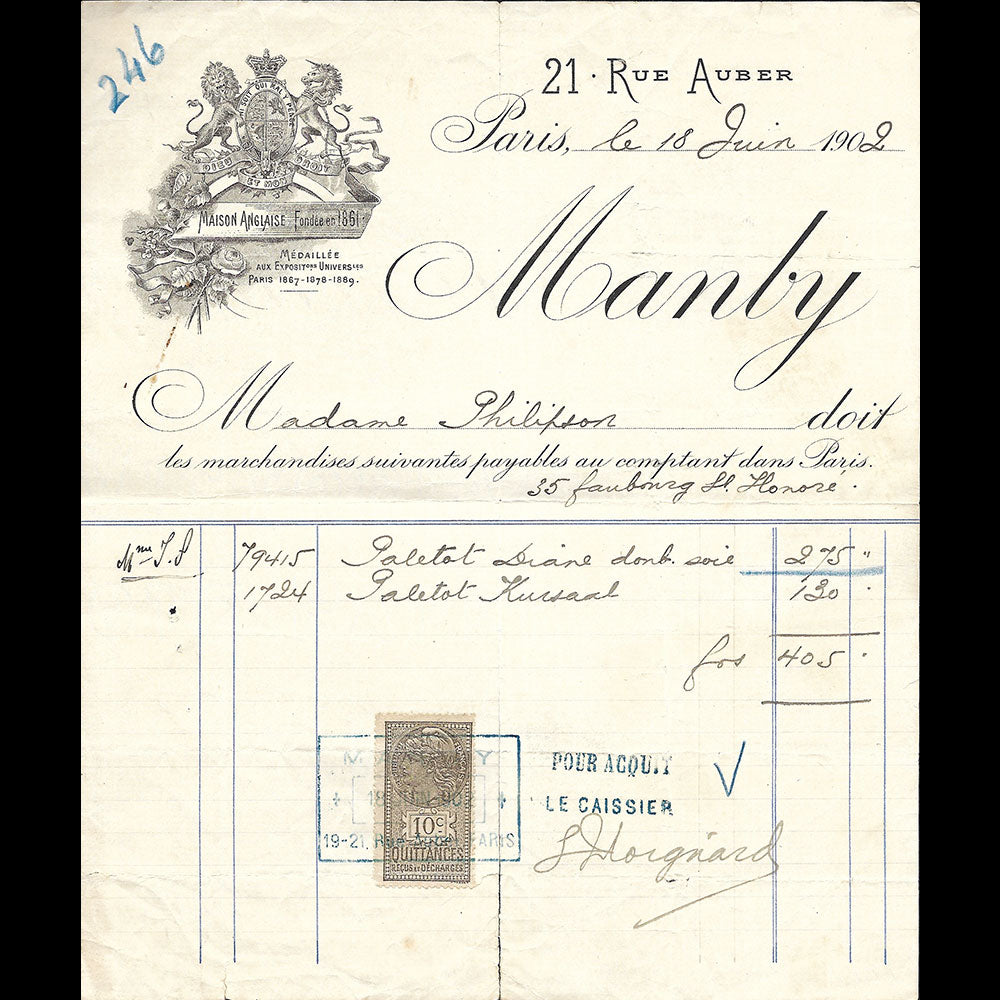 246
21 · RUE AUBER
Paris, le 18 Juin 1902
SOIT QUI MAL Y PENSE
DIEU ET MON DROIT
MAISON ANGLAISE Fondée en 1861
MÉDAILLÉE
AUX EXPOSITONS UNIVERSLES
PARIS 1867-1878-1889.
Manby
Madame Philipson doit
les marchandises suivantes payables au comptant dans Paris.
35 faubourg St. Honoré.
Mme
79415 Paletot Diane doub. soie 275 "
1724 Paletot Kursaal 130 "
frs 405 "
MANBY
18 JUIN 902
19-21, Rue Auber PARIS
10c
QUITTANCES
REÇUS ET DÉCHARGES
POUR ACQUIT
LE CAISSIER